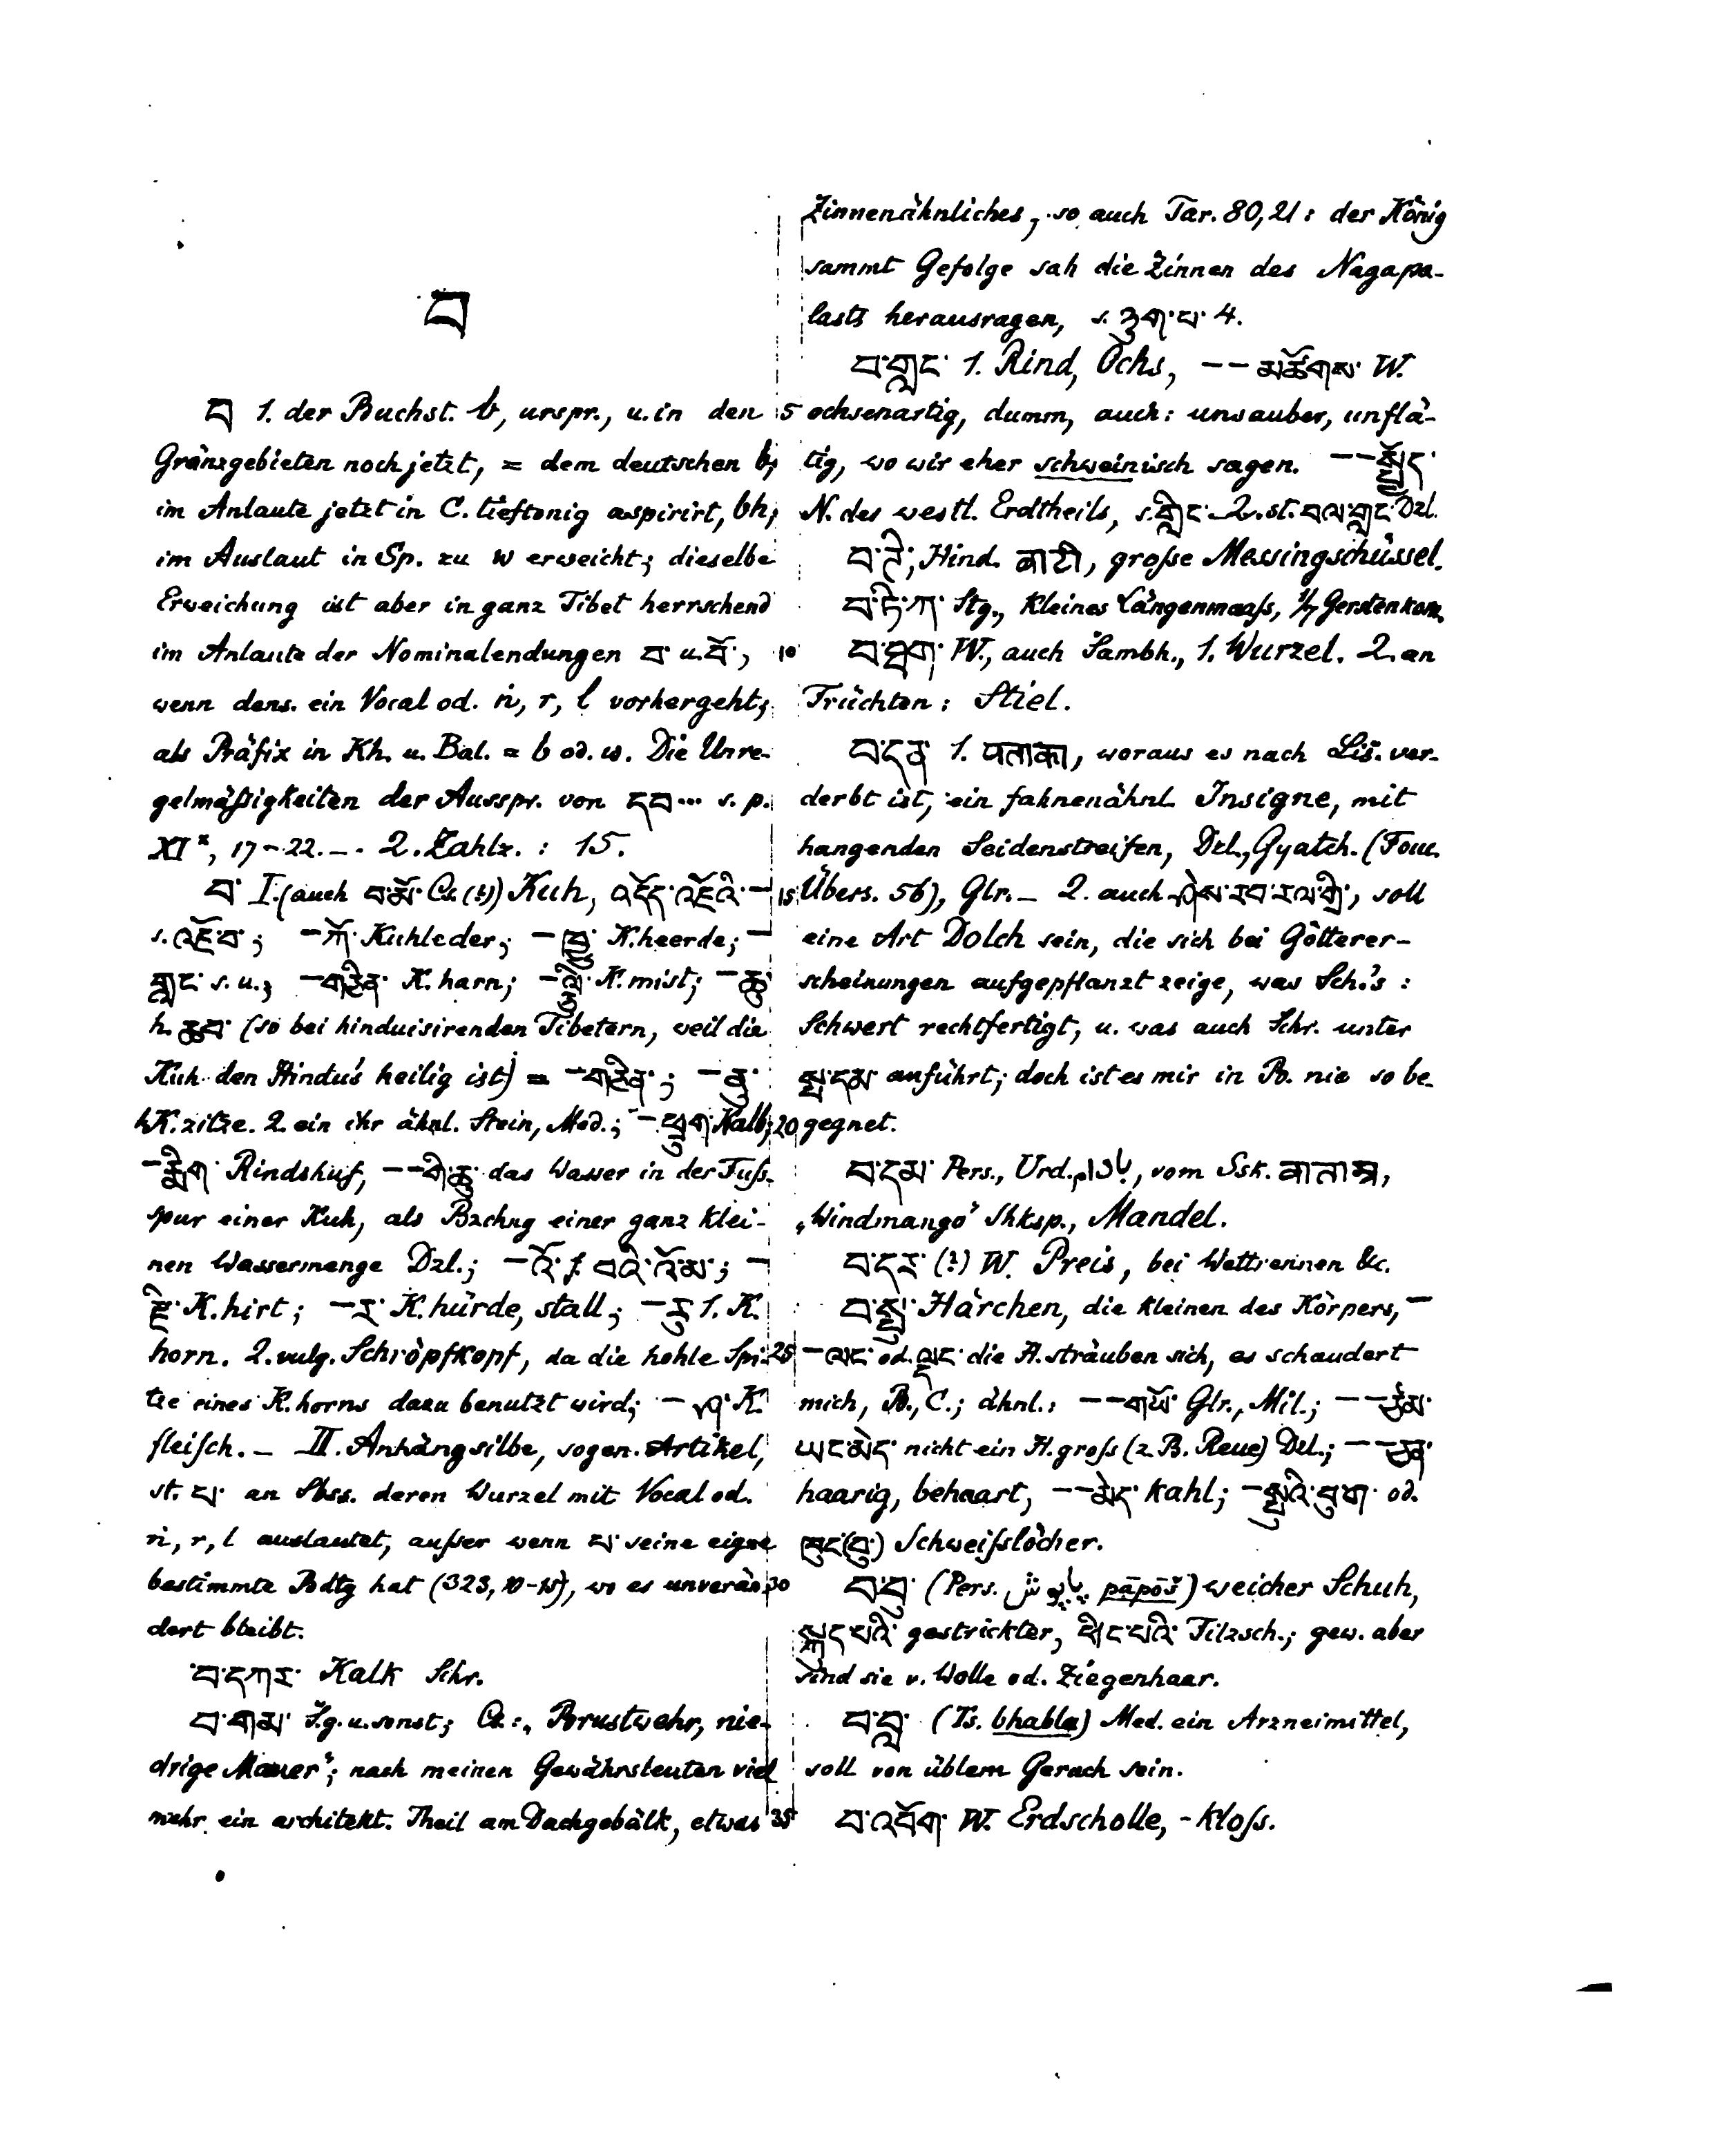 བ
བ 1. der Buchst. b, urspr., u. in den
Gränzgebieten noch jetzt, = dem deutschen b;
im Anlaute jetzt in C. tieftonig aspirirt, bh;
im Auslaut in Sp. zu w erweicht; dieselbe
Erweichung ist aber in ganz Tibet herrschend
im Anlaute der Nominalendungen བ་ u. བོ་,
wenn dens. ein Vocal od. ṅ, r, l vorhergeht;
als Präfix in Kh. u. Bal. = b od. w. Die Unre-
gelmäßigkeiten der Ausspr. von དབ... s. p.
XI*, 17-22. _ . 2. Zahlz. : 15.
བ་ I. (auch བ་མོ་ Cs. (?)) Kuh, འདོད་འཇོའི་ —
s. འཇོ་བ་; —ཀོ་ Kuhleder; —ཁྱུ་ K.heerde; —
གླང་ s. u.; —གཅིན་ K. harn; —ལྕི་ K. mist; —ཆུ་
h. ཆབ་ (so bei hinduisirenden Tibetern, weil die
Kuh den Hindu's heilig ist) = —གཅིན་; —ནུ་
1. K. zitze. 2. ein ihr ähnl. Stein, Med.; —ཕྲུག་ Kalb;
—རྨིག་ Rindshuf, ——གི་ཆུ་ das Wasser in der Fuß-
spur einer Kuh, als Bzchng einer ganz klei-
nen Wassermenge Dzl.; —འོ་ f. བའི་འོ་མ་; —
རྫི་ K. hirt; —ར་ K. hürde, stall; —རུ་ 1. K.
horn. 2. vulg. Schröpfkopf, da die hohle Spi-
tze eines K. horns dazu benutzt wird; —ཤ་ K.
fleisch. _ II. Anhängsilbe, sogen. Artikel,
st. པ་ an Sbss. deren Wurzel mit Vocal od.
ṅ, r, l auslautet, außer wenn པ་ seine eigne
bestimmte Bdtg hat (323, 10-15), wo es unverän-
dert bleibt.
བ་དཀར་ Kalk Schr.
བ་གམ་ S.g. u. sonst; Cs.: „Brustwehr, nie-
drige Mauer"; nach meinen Gewährsleuten viel
mehr ein architekt. Theil am Dachgebälk, etwas
Zinnenähnliches, so auch Tar. 80, 21: der König
sammt Gefolge sah die Zinnen des Nagapa-
lasts herausragen, s. ཏྲུག་པ་ 4.
བ་གླང་ 1. Rind, Ochs, —— མཚོགས་ W.
5 ochsenartig, dumm, auch: unsauber, unflä-
tig, wo wir eher schweinisch sagen. ——སྤྱོད་
N. des westl. Erdtheils, s. གླིང་ _ 2. st. བལ་གླང་ Dzl.
བ་ཊི; Hind. बाटी, große Messingschüssel.
བ་ཏི་ཀ་ Stg., kleines Längenmaaß, 1/7 Gerstenkorn.
10 བ་ཐག་ W., auch Sambh., 1. Wurzel. 2. an
Früchten: Stiel.
བ་དན་ 1. पताका, woraus es nach Liš. ver-
derbt ist, ein fahnenähnl. Insigne, mit
hangenden Seidenstreifen, Dzl., Gyatch. (Fouc.
15 Übers. 56), Glr. _ 2. auch ཤེས་རབ་རལ་གྲི་, soll
eine Art Dolch sein, die sich bei Götterer-
scheinungen aufgepflanzt zeige, was Sch.'s:
Schwert rechtfertigt, u. was auch Schr. unter
སྤ་དམ་ anführt; doch ist es mir in B. nie so be
20 gegnet.
བ་དམ་ Pers., Urd. بادام, vom Ssk. वाताम्र,
„Windmango" Shksp., Mandel.
བ་དར་ (?) W. Preis, bei Wettrennen &c.
བ་སྤུ་ Härchen, die kleinen des Körpers, —
25 —ལང་ od. ལྡང་ die H. sträuben sich, es schaudert
mich, B., C.; ähnl.: ——གཡོ་ Glr., Mil.; ——ཙམ་
ཡང་མེད་ nicht ein H. groß (z. B. Reue) Dzl.; ——ཅན་
haarig, behaart, ——མེད་ kahl; —སྤུའི་བུ་ག་ od.
ཁུང་(བུ་) Schweißlöcher.
30 བ་བུ་ (Pers. پاپوش pāpōš) weicher Schuh,
སྐུད་པའི་ gestrickter, ཕྱིང་པའི་ Filzsch.; gew. aber
sind sie v. Wolle od. Ziegenhaar.
བ་བླ་ (Ts. bhabla) Med. ein Arzneimittel,
soll von üblem Geruch sein.
35 བ་འབོག་ W. Erdscholle, -kloß.